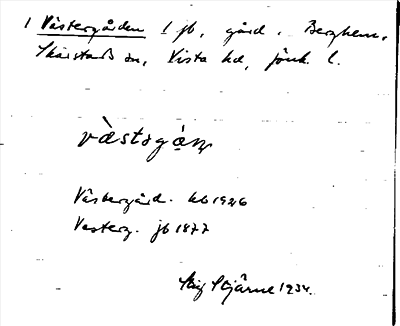 1 Västergården 1 jb, gård, Berghem,
Skärstads sn, Vista hd, Jönk. l.
Västergård. kb 1926
Vasterg. jb 1877
Stig Stjärne 1934.